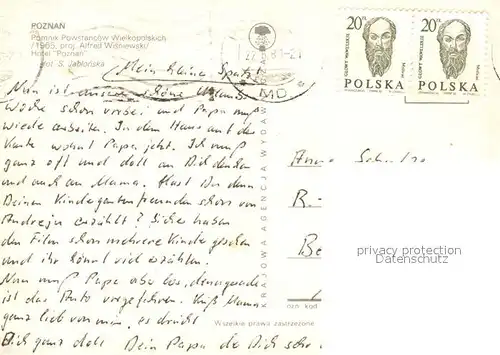 POZNAŃ
Pomnik Powstańców Wielkopolskich
/1965, proj. Alfred Wiśniewski/
Hotel "Poznań"
Fot. S. Jabłońska
Mein kleiner Spatz!
Nun ist unsere schöne Urlaubs
Woche schon vorbei und Papa muß
wieder arbeiten. In dem Haus auf der
Karte wohnt Papa jetzt. Ich muß
ganz oft und doll an Dich denken
und auch an Mama. Hast Du denn
Deinen Kindergartenfreunden schon von
Andreju erzählt? Sicher haben
den Film schon mehrere Kinder gesehen
und ihr könnt viel erzählen.
Nun muß Papa aber los, denn gerade
ist das Auto vorgefahren. Küß Mama
ganz lieb von mir, es drückt
Dich ganz doll Dein Papa der Dich sehr
KRAJOWA AGENCJA WYDAW
MO
20 ZŁ
20 ZŁ
POLSKA
POLSKA
R.-
Be
privacy protection
Datenschutz
kod
Wszelkie prawa zastrzeżone